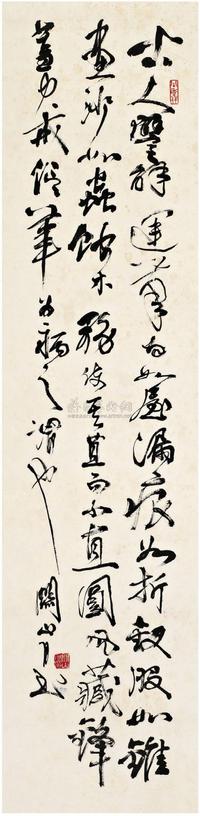 古人譬解運筆有如屋漏痕如折釵股如錐
畫沙如蟲蝕木務使其直而不直圓而藏鋒
蓋力戒信筆為病之謂也 關山月